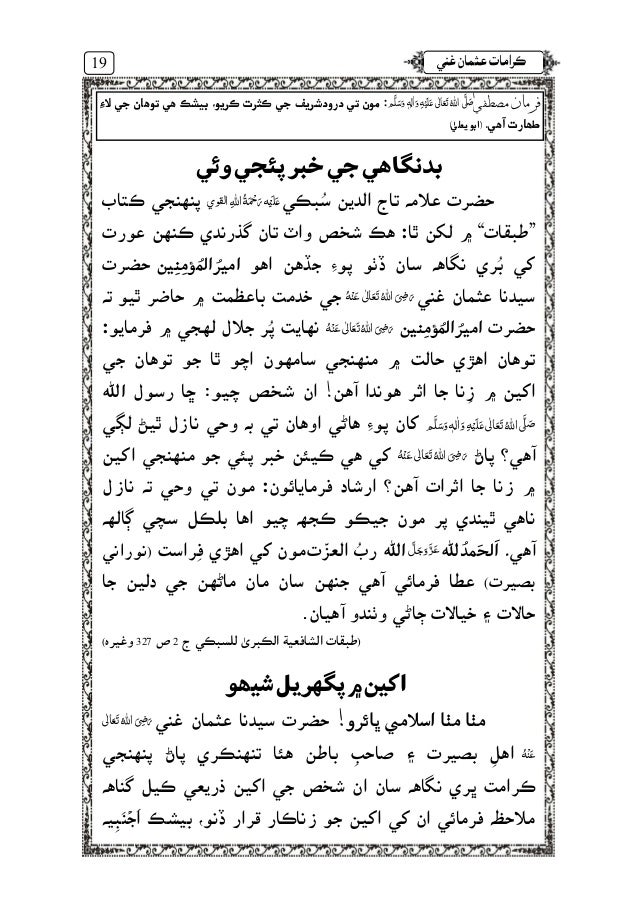 19
ڪرامات عثمان غني
فرمانِ مصطفيٰ صَلَّی اللہُ تَعَالٰی عَلَيْہِ وَاٰلِہٖ وَسَلَّم: مون تي درودشريف جي ڪثرت ڪريو، بيشڪ هي توهان جي لاءِ
طهارت آهي. (ابو يعليٰ)
بدنگاهي جي خبر پئجي وئي
حضرت علامه تاج الدين سُبڪي عَلَيْہِ رَحْمَۃُ اللہِ القوي پنهنجي ڪتاب
”طبقات“ ۾ لکن ٿا: هڪ شخص واٽ تان گذرندي ڪنهن عورت
کي بُري نگاهه سان ڏٺو پوءِ جڏهن اهو اميرُالمُؤمِنِين حضرت
سيدنا عثمان غني رَضِیَ اللہُ تَعَالٰی عَنْہُ جي خدمت باعظمت ۾ حاضر ٿيو ته
حضرت اميرُالمُؤمِنين رَضِیَ اللہُ تَعَالٰی عَنْہُ نهايت پُر جلال لهجي ۾ فرمايو:
توهان اهڙي حالت ۾ منهنجي سامهون اچو ٿا جو توهان جي
اکين ۾ زِنا جا اثر هوندا آهن! ان شخص چيو: ڇا رسول الله
صَلَّی اللہُ تَعَالٰی عَلَيْہِ وَاٰلِہٖ وَسَلَّم کان پوءِ هاڻي اوهان تي به وحي نازل ٿيڻ لڳي
آهي؟ پاڻ رَضِیَ اللہُ تَعَالٰی عَنْہُ کي هي ڪيئن خبر پئي جو منهنجي اکين
۾ زنا جا اثرات آهن؟ ارشاد فرمايائون: مون تي وحي ته نازل
ناهي ٿيندي پر مون جيڪو ڪجهه چيو اها بلڪل سچي ڳالهه
آهي. اَلحَمدُلله عَزَّوَجَلَّ الله ربُ العزّت مون کي اهڙي فِراست (نوراني
بصيرت) عطا فرمائي آهي جنهن سان مان ماڻهن جي دلين جا
حالات ۽ خيالات ڄاڻي وٺندو آهيان.
(طبقات الشافعية الکبریٰ للسبکي ج 2 ص 327 وغيره)
اکين ۾ پگهريل شيهو
مٺا مٺا اسلامي ڀائرو! حضرت سيدنا عثمان غني رَضِیَ اللہُ تَعَالٰی
عَنْہُ اهلِ بصيرت ۽ صاحبِ باطن هئا تنهنڪري پاڻ پنهنجي
ڪرامت ڀري نگاهه سان ان شخص جي اکين ذريعي ڪيل گناهه
ملاحظه فرمائي ان کي اکين جو زناڪار قرار ڏنو، بيشڪ اَجْنَبِيه